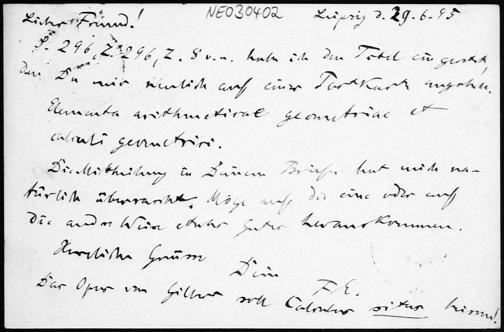 Lieber Freund! NE030402 Leipzig d. 29.6.95
S. 296, Z. 8 v. u. habe ich den Titel eingesetzt,
den Du mir neulich auf einer Postkarte angeben.
Elementa arithmeticae geometriae et
calculi geometrici.
Die Mittheilung in Deinem Briefe hat mich na-
türlich überrascht. Möge auf die eine oder auf
die andre Weise etwas Gutes herauskommen.
Herzliche Grüsse
Dein
F. E.
Das Opus von Gilbert soll Calculus situs heissen!